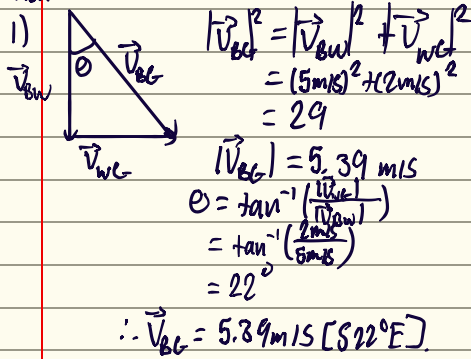 1)
θ
V⃗BG
V⃗BW
V⃗WG
|V⃗BG|² = |V⃗BW|² + |V⃗WG|²
= (5m/s)² + (2m/s)²
= 29
|V⃗BG| = 5.39 m/s
θ = tan⁻¹(|V⃗WG|/|V⃗BW|)
= tan⁻¹(2m/s/5m/s)
= 22°
∴ V⃗BG = 5.39m/s [S22°E].